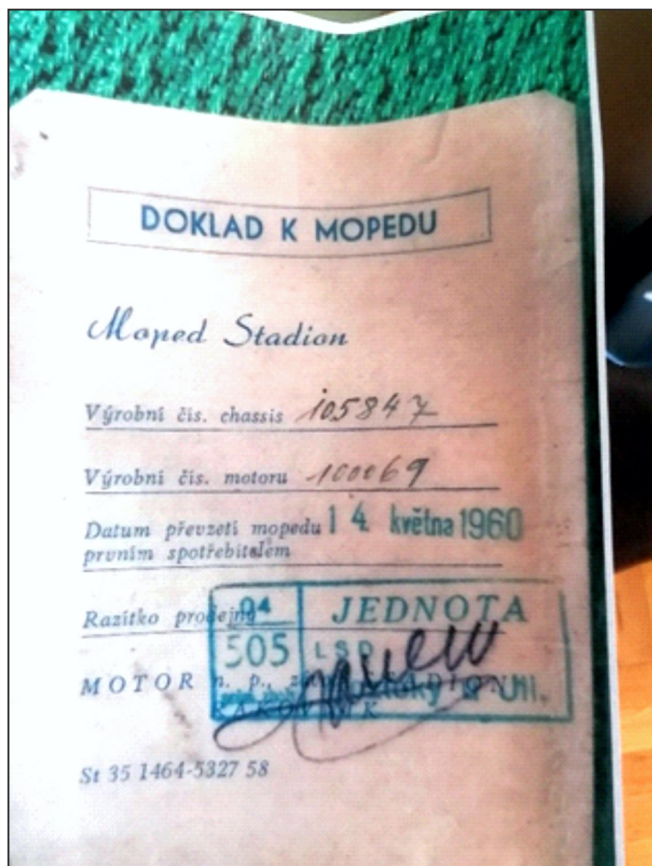 DOKLAD K MOPEDU
Moped Stadion
Výrobní čís. chassis 105847
Výrobní čís. motoru 100069
Datum převzetí mopedu 14. května 1960
prvním spotřebitelem
Razítko prodejny
04
JEDNOTA
505
LSD
MOTOR n. p.,
St 35 1464-5327 58